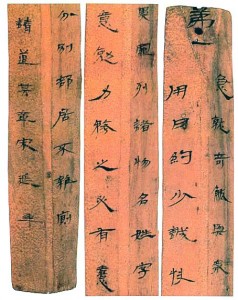 第一
急就奇觚與衆
用日約少誠快
異羅列諸物名姓字
意勉力務之必有憙
分別部居不雜廁
請道其章宋延年